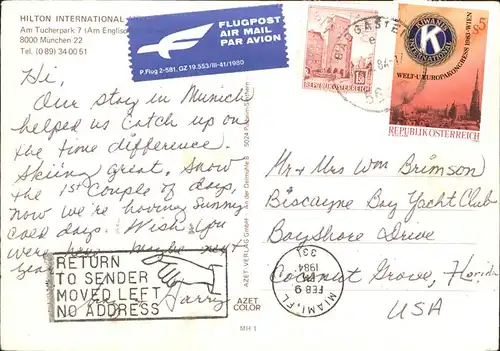 HILTON INTERNATIONAL
Am Tucherpark 7 (Am Englisc
8000 München 22
Tel. (0 89) 34 00 51
FLUGPOST
AIR MAIL
PAR AVION
P.Flug 2-581, ÖZ 19.553/III-41/1980
BADGASTEIN
REPUBLIK ÖSTERREICH
KIWANIS
K
INTERNATIONAL
WELT-U. EUROPAKONGRESS 1983·WIEN
S5
REPUBLIK ÖSTERREICH
Hi,
Our stay in Munich
helped us catch up on
the time difference.
Skiing great, snow
the 1st couple of days,
now we're having sunny
cold days. Wish you
were here. Maybe next
year
Harry
RETURN
TO SENDER
MOVED LEFT
NO ADDRESS
AZET-VERLAG GmbH · An der Dellmühle 8 · 5024 Pulheim-Sinthern
AZET
COLOR
MH 1
Mr & Mrs Wm Brimson
Biscayne Bay Yacht Club
Bayshore Drive
Coconut Grove, Florida
USA
MIAMI, FL
FEB 9
1984
331